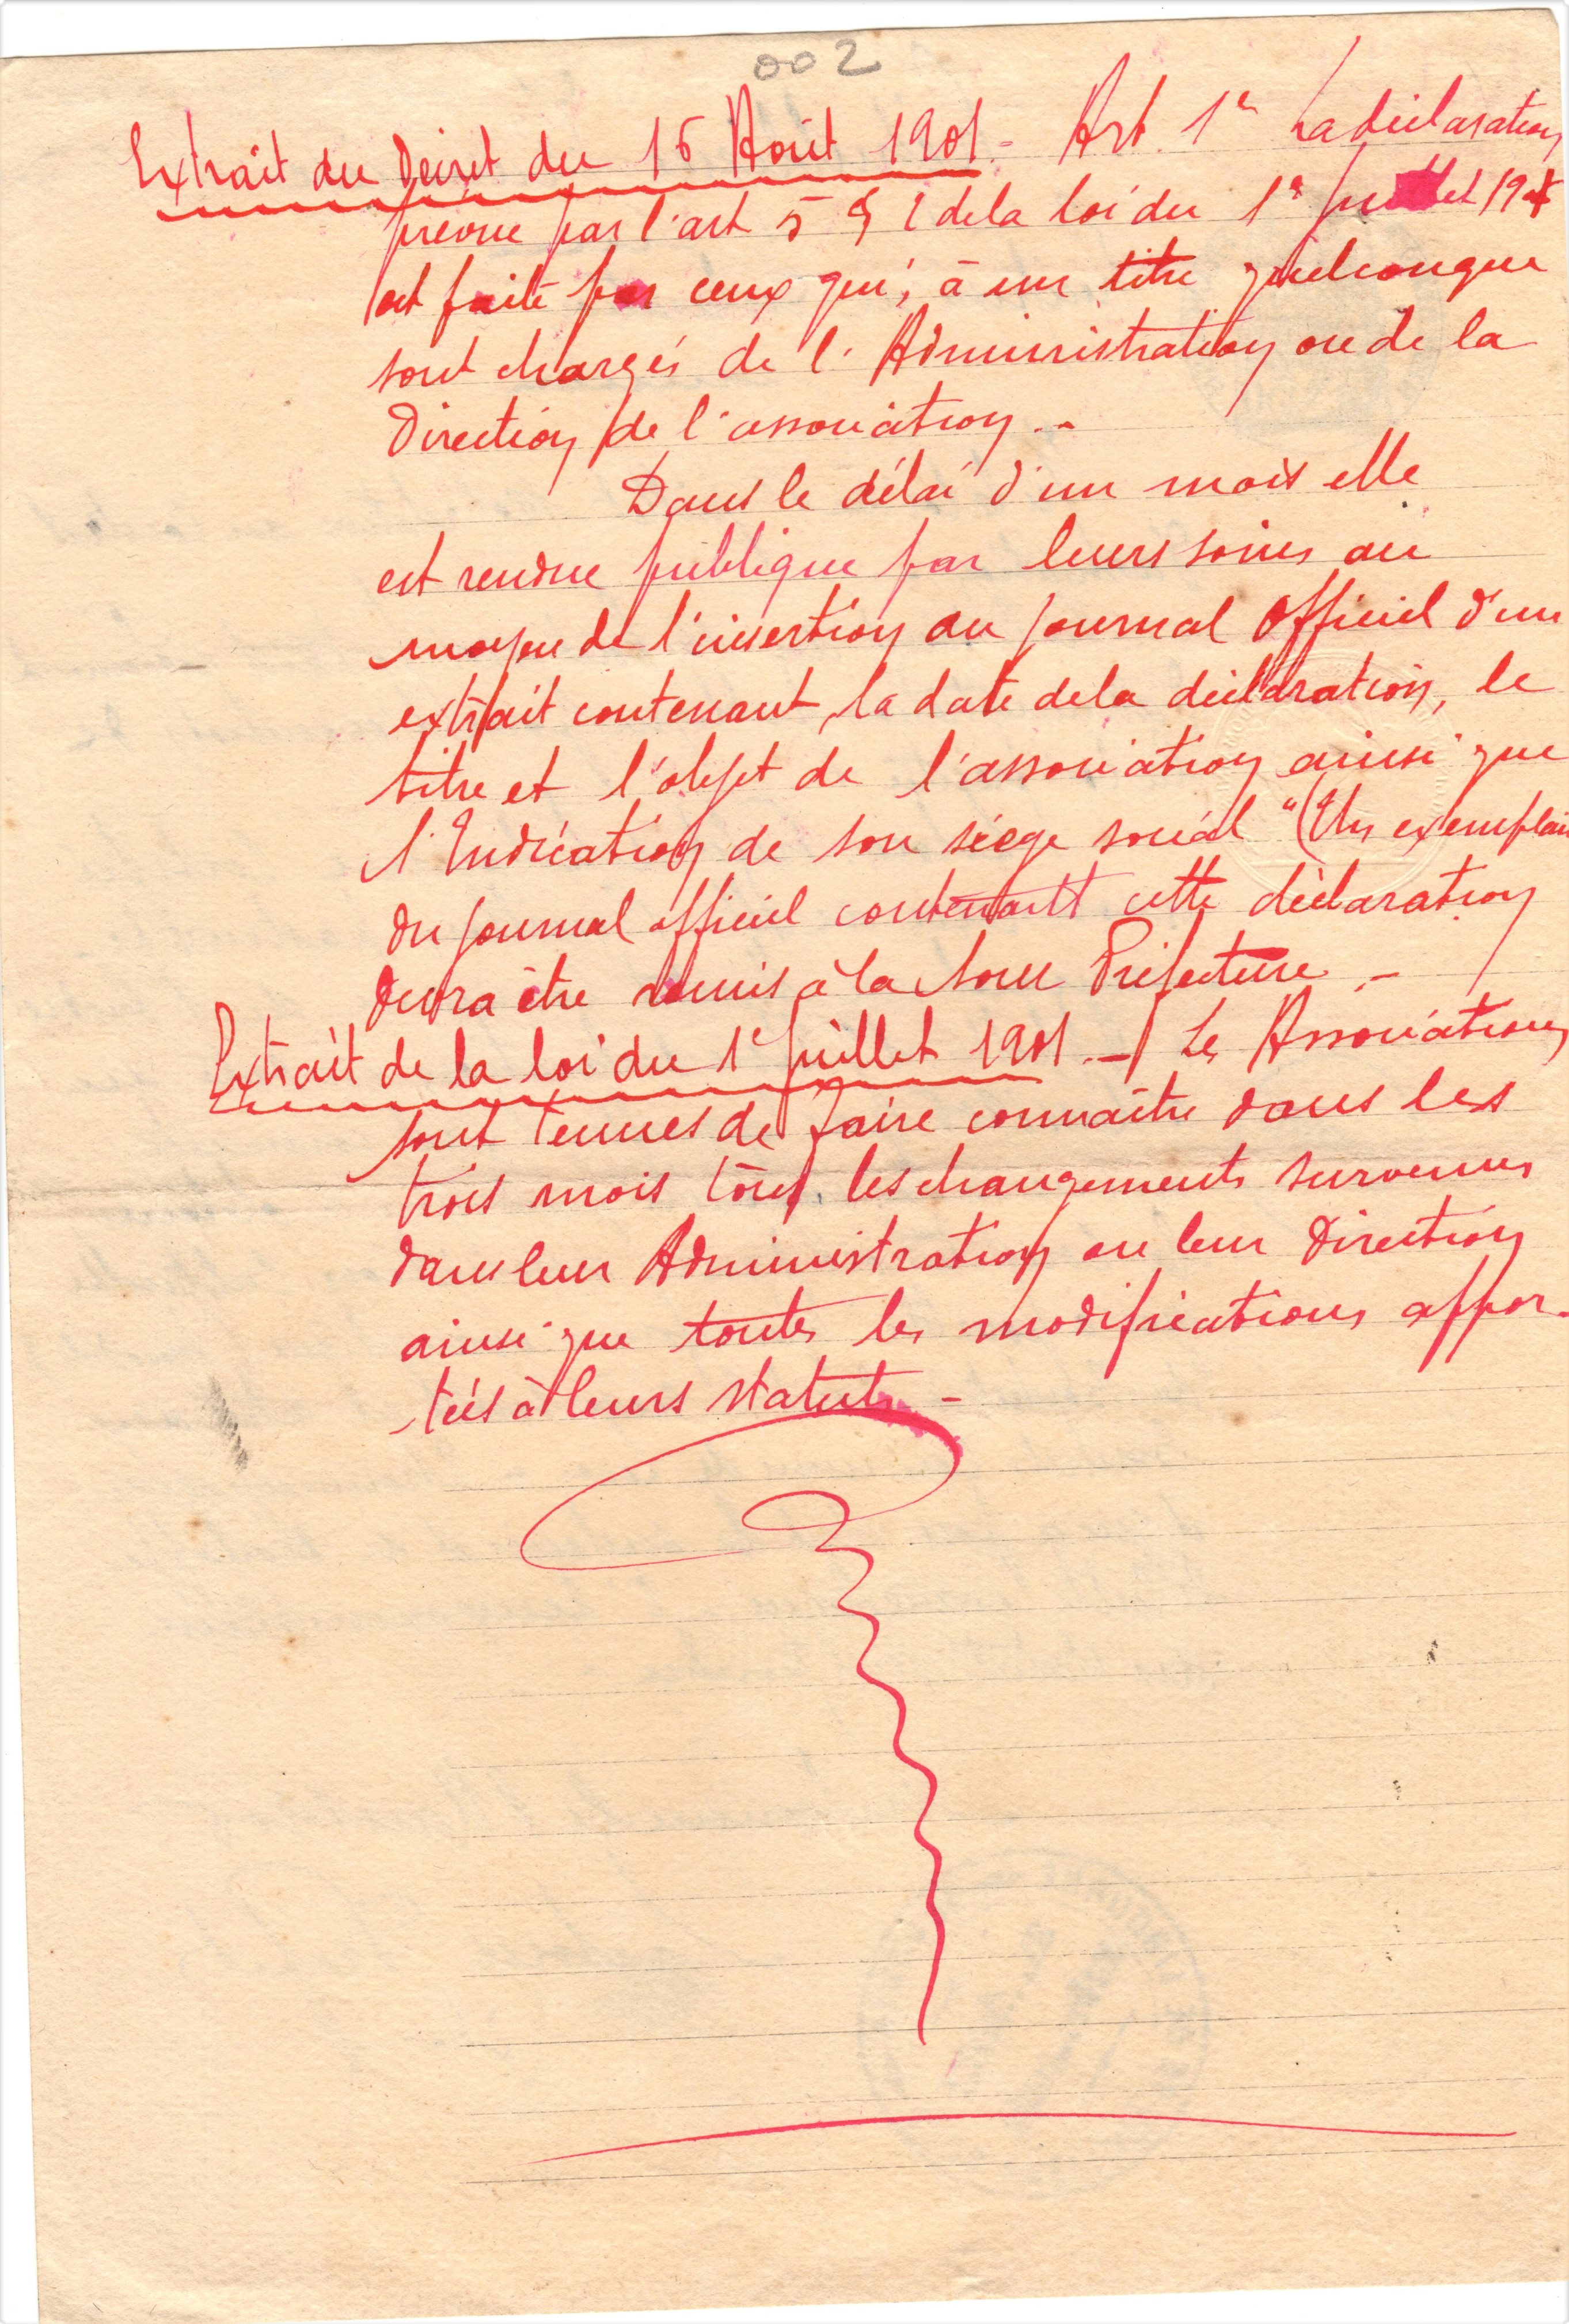 002
Extrait du Décret du 16 Août 1901.- Art. 1er La déclaration
prévue par l'art 5 § 2 de la loi du 1er juillet 1901
est faite par ceux qui, à un titre quelconque
sont chargés de l'Administration ou de la
Direction de l'association.-
Dans le délai d'un mois elle
est rendue publique par leurs soins au
moyen de l'insertion au journal Officiel d'un
extrait contenant, la date de la déclaration, le
titre et l'objet de l'association ainsi que
l'Indication de son siège social "(Un exemplaire
du journal officiel contenant cette déclaration
devra être remis à la Sous Préfecture.-
Extrait de la loi du 1er juillet 1901.-/ Les Associations
sont tenues de faire connaître dans les
trois mois tous les changements survenus
dans leur Administration ou leur Direction
ainsi que toutes les modifications appor-
tées à leurs statuts -